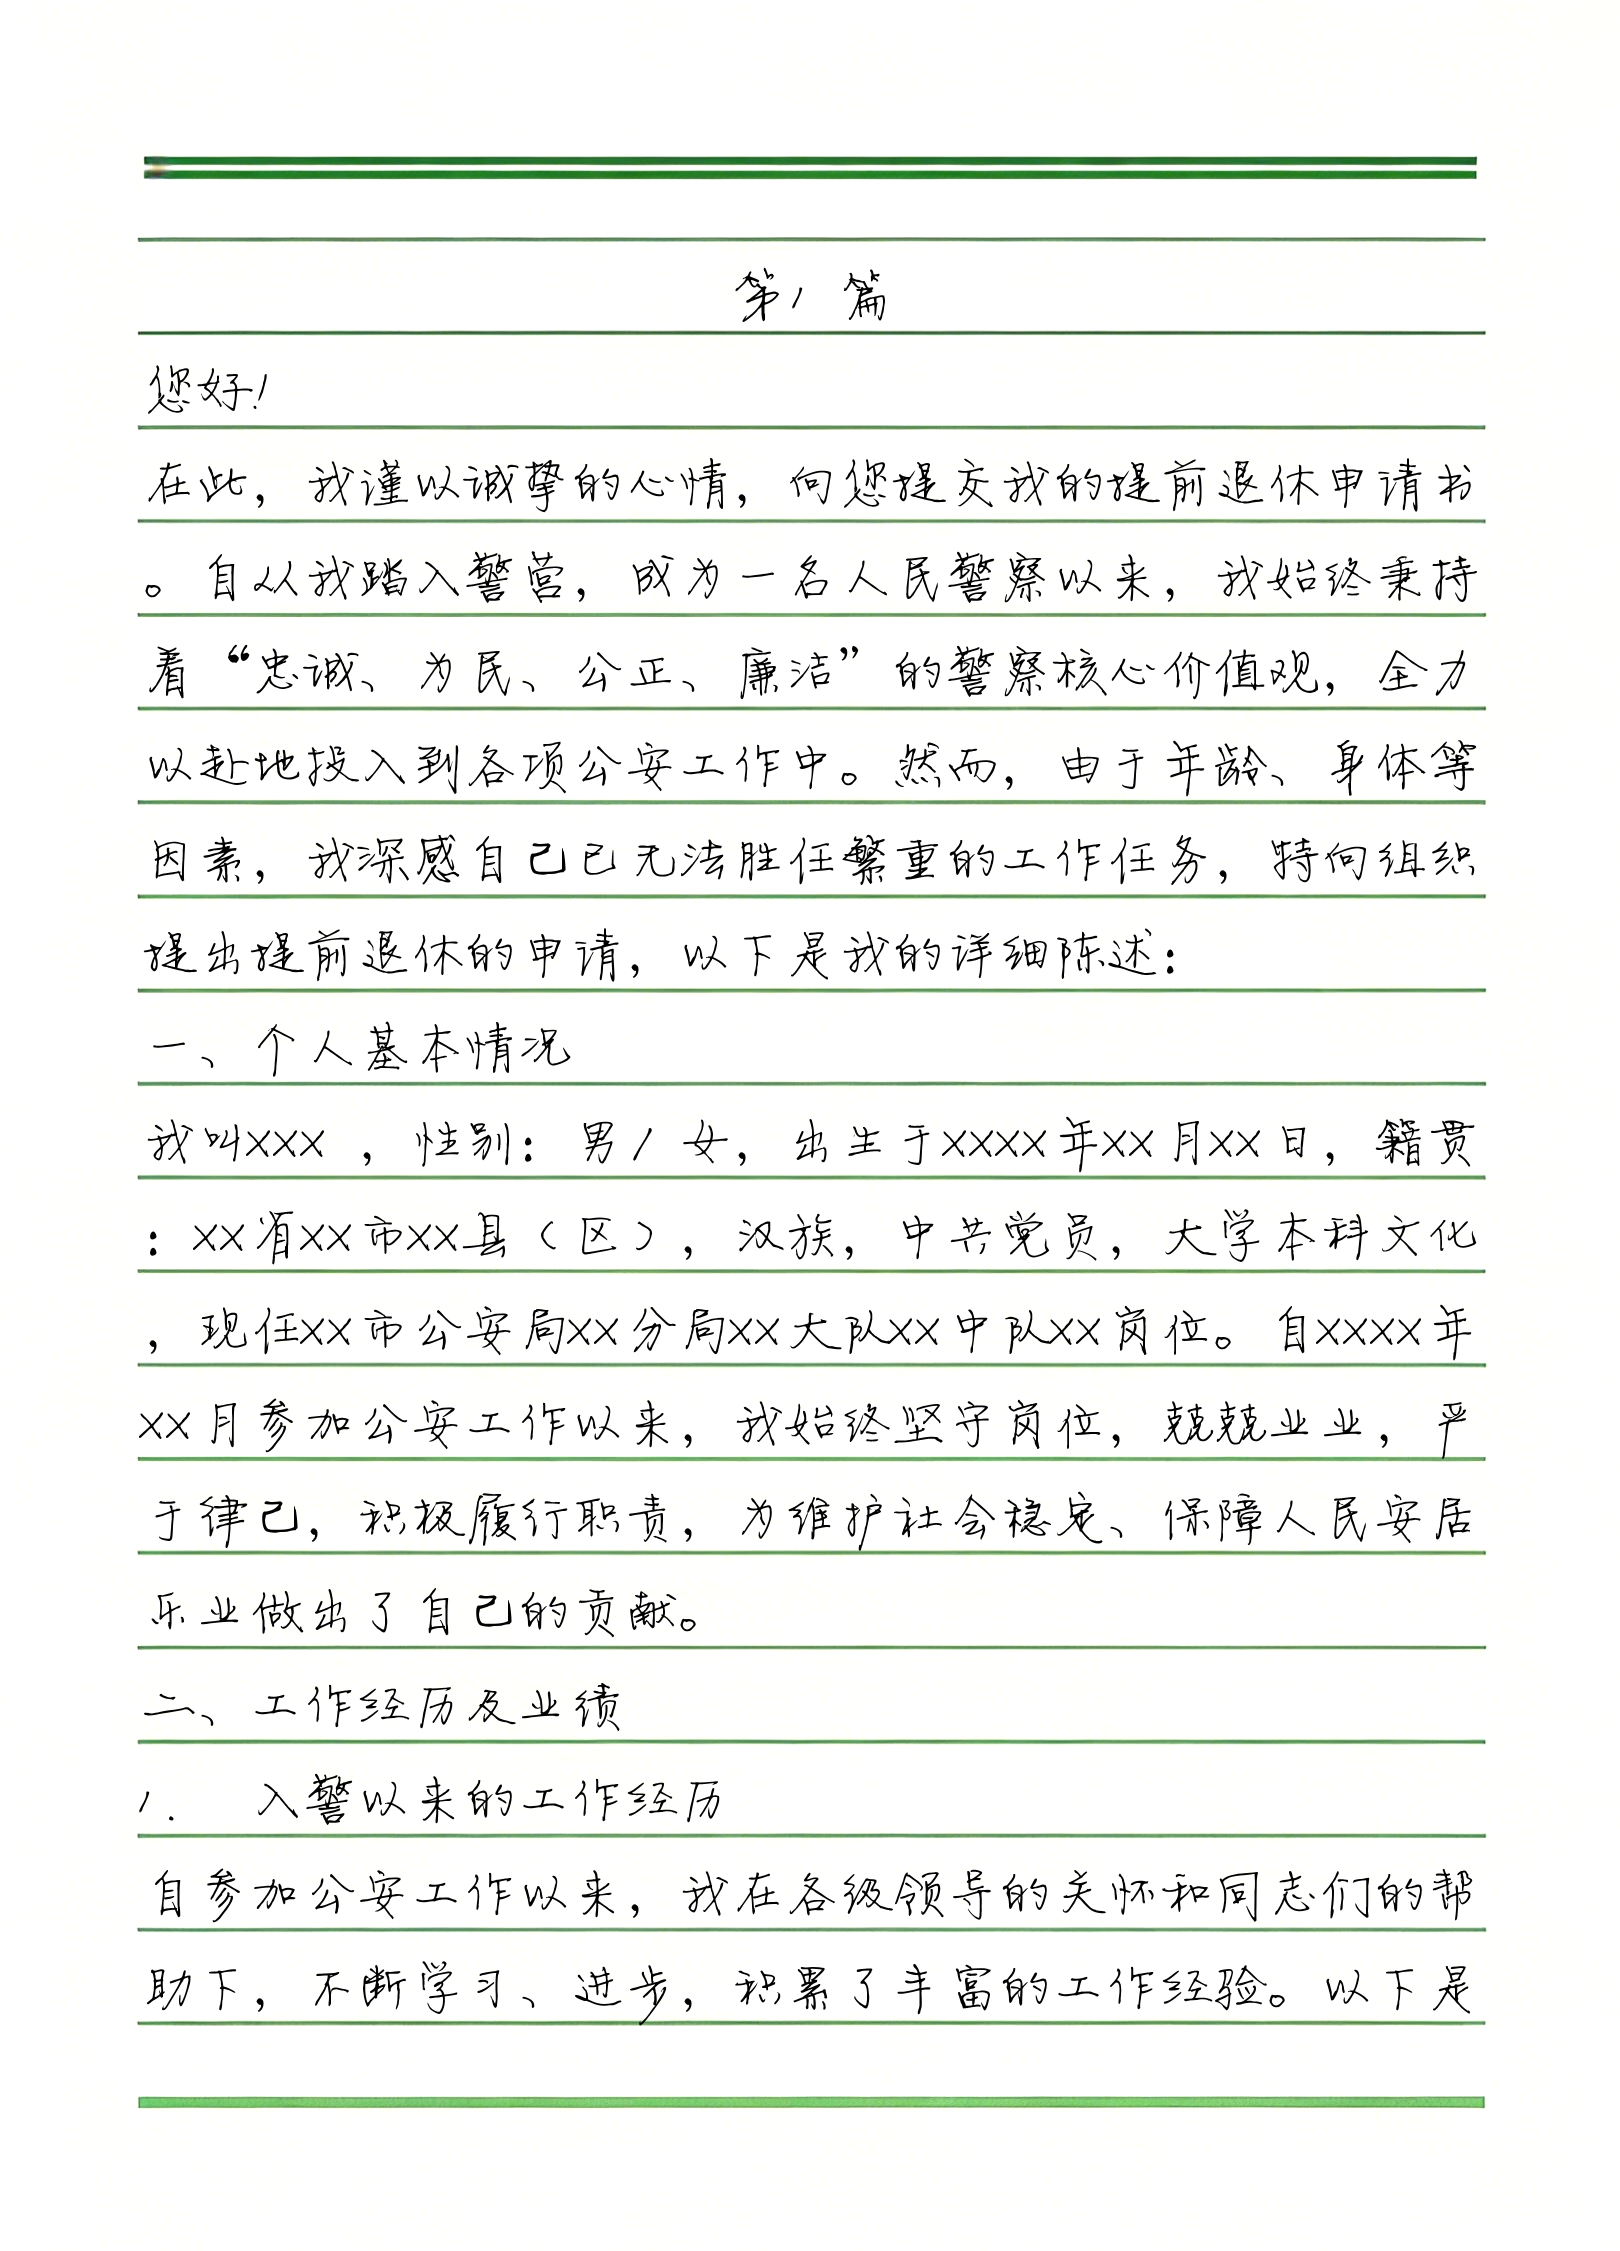 第1篇
您好!
在此，我谨以诚挚的心情，向您提交我的提前退休申请书
。自从我踏入警营，成为一名人民警察以来，我始终秉持
着“忠诚、为民、公正、廉洁”的警察核心价值观，全力
以赴地投入到各项公安工作中。然而，由于年龄、身体等
因素，我深感自己已无法胜任繁重的工作任务，特向组织
提出提前退休的申请，以下是我的详细陈述：
一、个人基本情况
我叫XXX ，性别：男/女，出生于XXXX年XX月XX日，籍贯
：XX省XX市XX县（区），汉族，中共党员，大学本科文化
，现任XX市公安局XX分局XX大队XX中队XX岗位。自XXXX年
XX月参加公安工作以来，我始终坚守岗位，兢兢业业，严
于律己，积极履行职责，为维护社会稳定、保障人民安居
乐业做出了自己的贡献。
二、工作经历及业绩
1. 入警以来的工作经历
自参加公安工作以来，我在各级领导的关怀和同志们的帮
助下，不断学习、进步，积累了丰富的工作经验。以下是